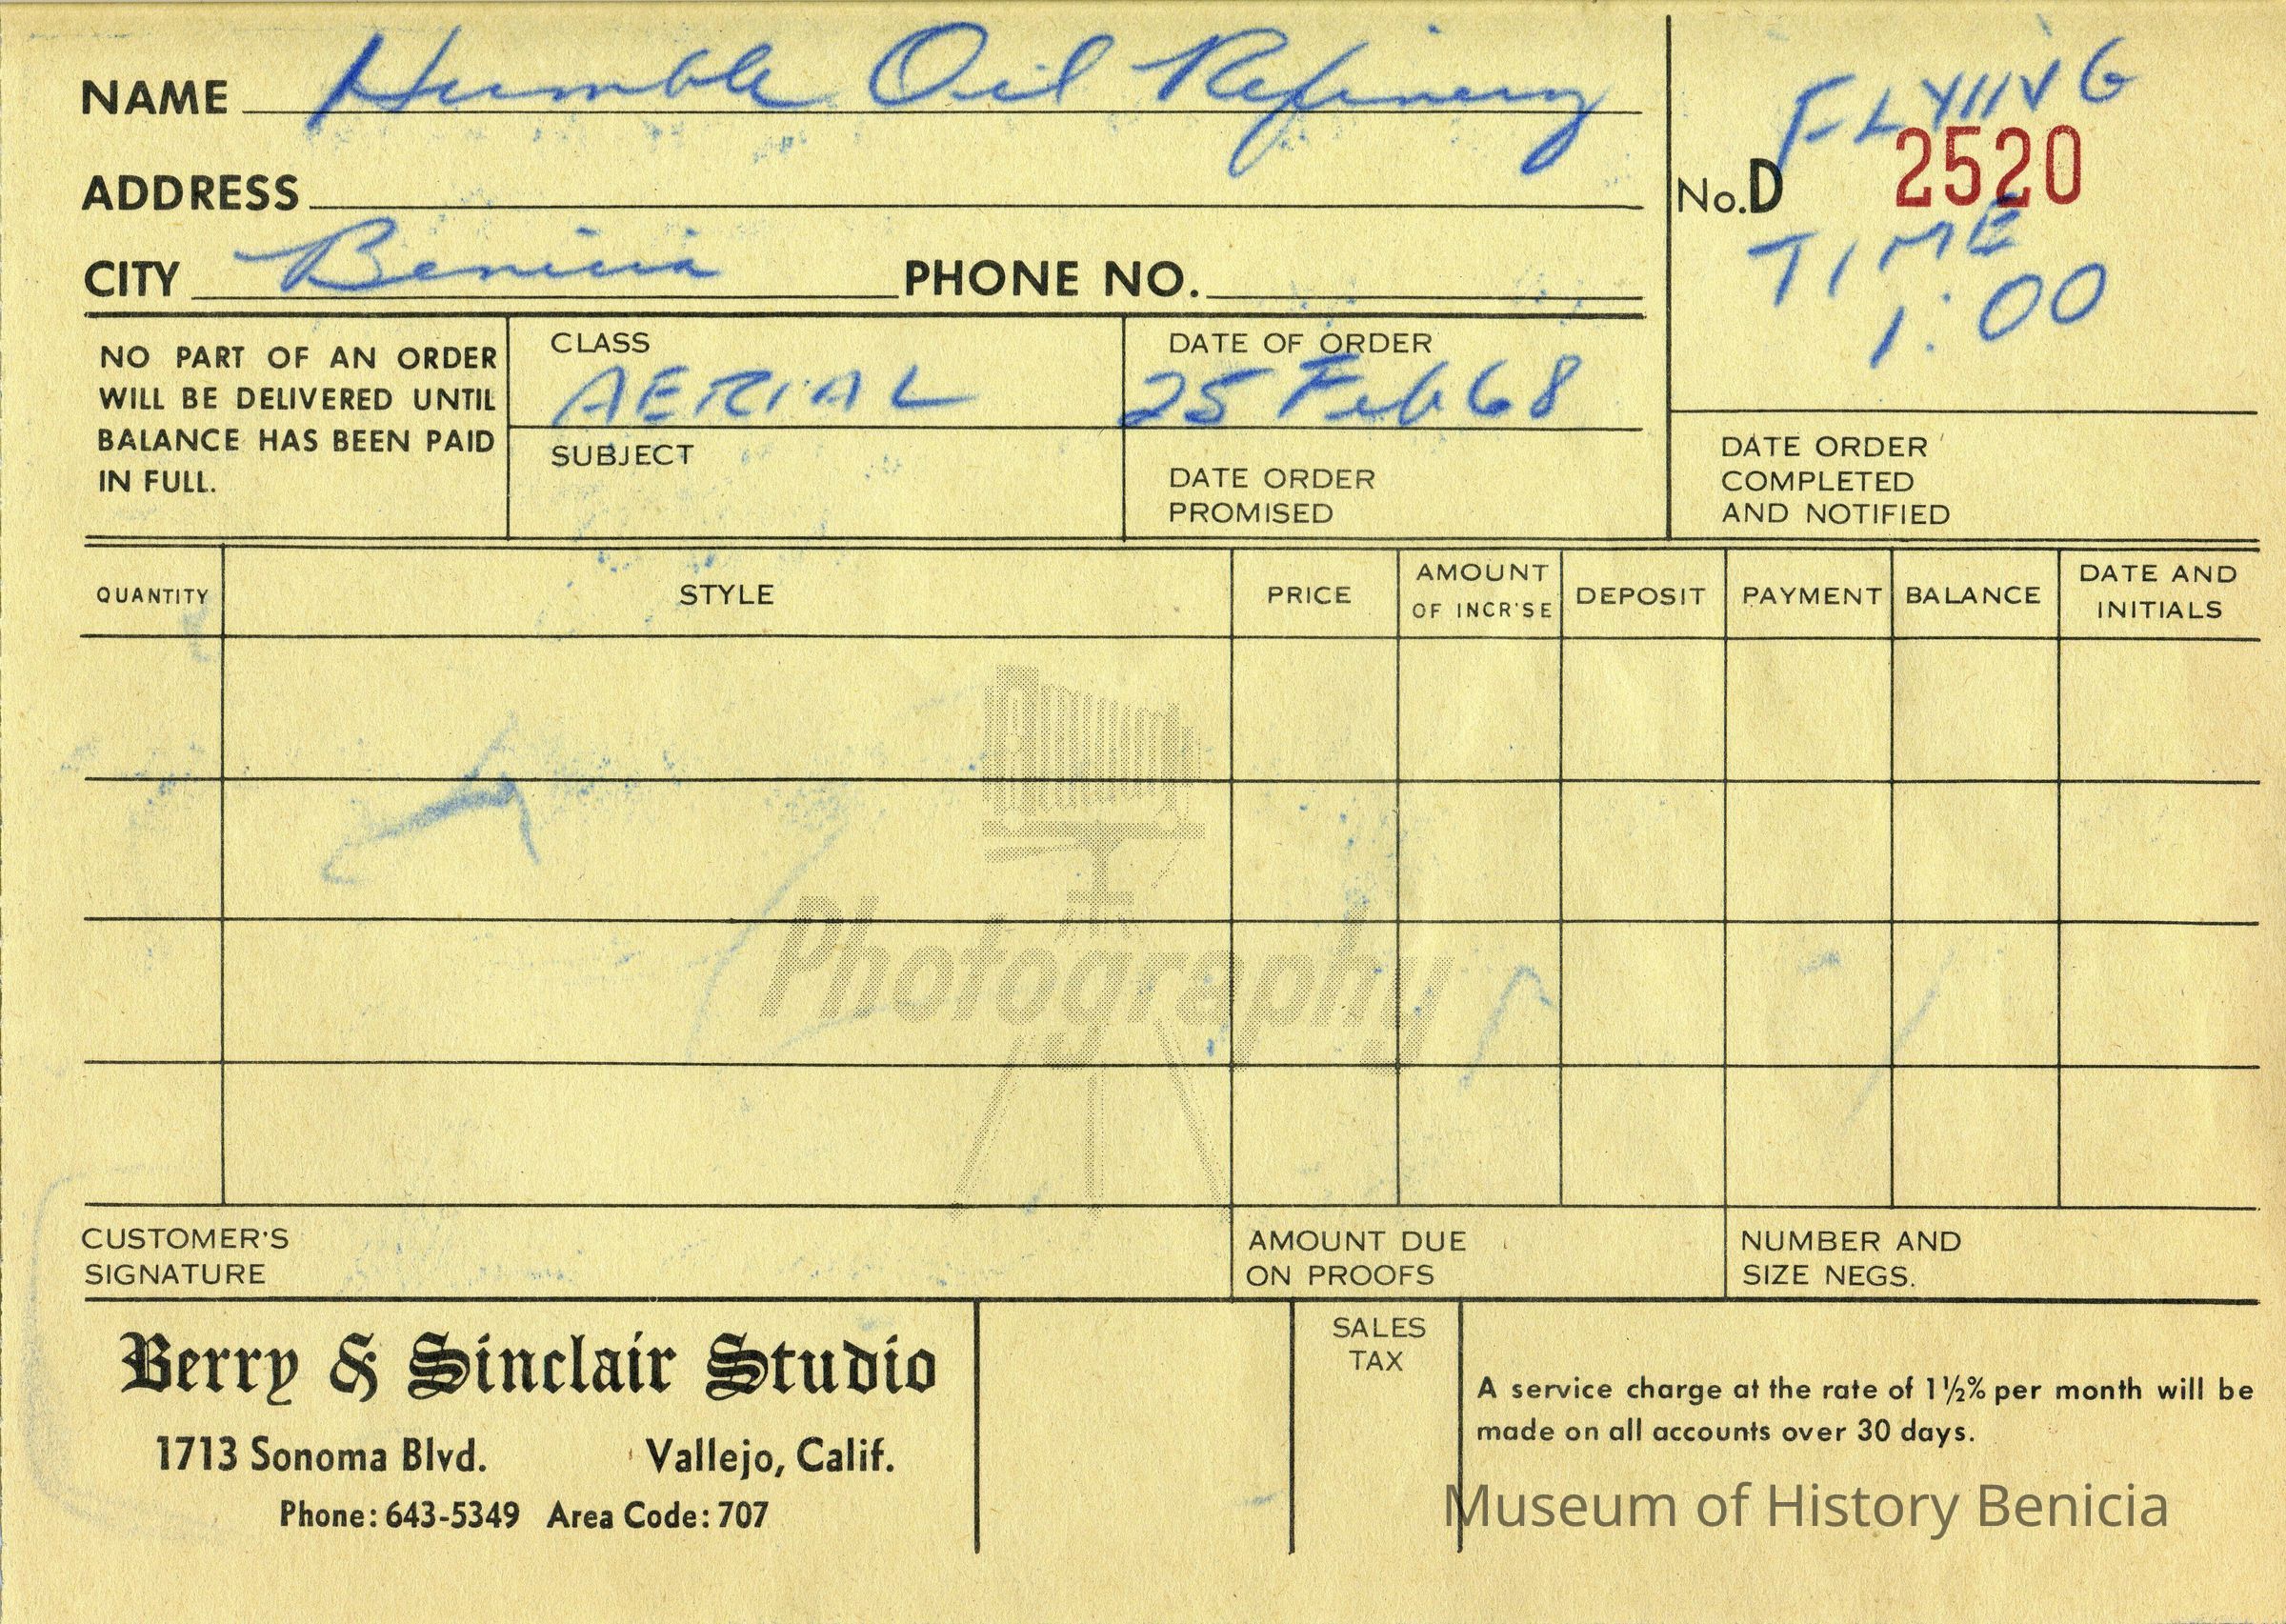 NAME Humble Oil Refinery
FLYING
ADDRESS
No.D 2520
CITY Benicia PHONE NO.
TIME
1:00
NO PART OF AN ORDER
WILL BE DELIVERED UNTIL
BALANCE HAS BEEN PAID
IN FULL.
CLASS
AERIAL
SUBJECT
DATE OF ORDER
25 Feb 68
DATE ORDER
PROMISED
DATE ORDER
COMPLETED
AND NOTIFIED
QUANTITY
STYLE
PRICE
AMOUNT
OF INCR'SE
DEPOSIT
PAYMENT
BALANCE
DATE AND
INITIALS
Photography
CUSTOMER'S
SIGNATURE
AMOUNT DUE
ON PROOFS
NUMBER AND
SIZE NEGS.
Berry & Sinclair Studio
1713 Sonoma Blvd. Vallejo, Calif.
Phone: 643-5349 Area Code: 707
SALES
TAX
A service charge at the rate of 1½% per month will be
made on all accounts over 30 days.
Museum of History Benicia